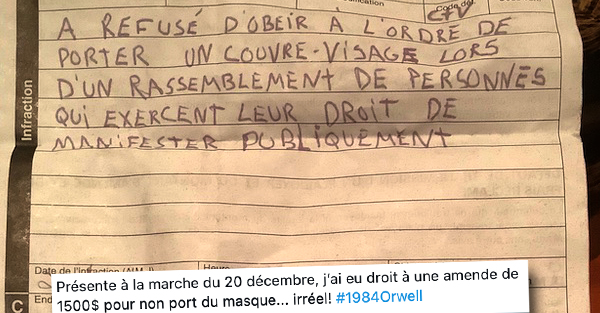 Code de
CTV
A REFUSÉ D'OBEIR A L'ORDRE DE
PORTER UN COUVRE-VISAGE LORS
D'UN RASSEMBLEMENT DE PERSONNES
QUI EXERCENT LEUR DROIT DE
MANIFESTER PUBLIQUEMENT
Infraction
Date de l'infraction
Heure
C
Présente à la marche du 20 décembre, j'ai eu droit à une amende de
1500$ pour non port du masque... irréel! #1984Orwell